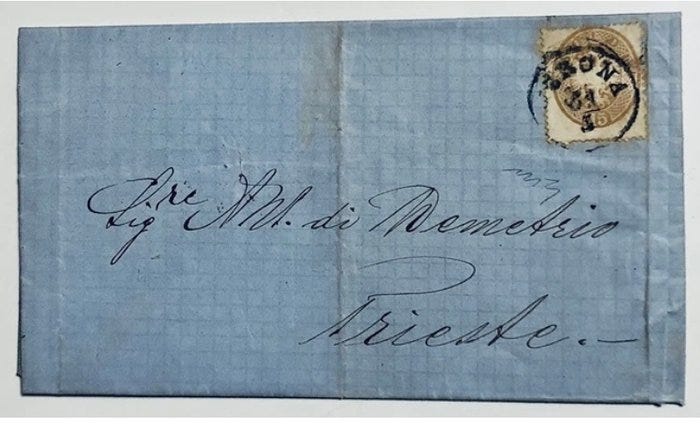 VERONA
31
5
15
Sig.re A. M. di Demetrio
Trieste.–